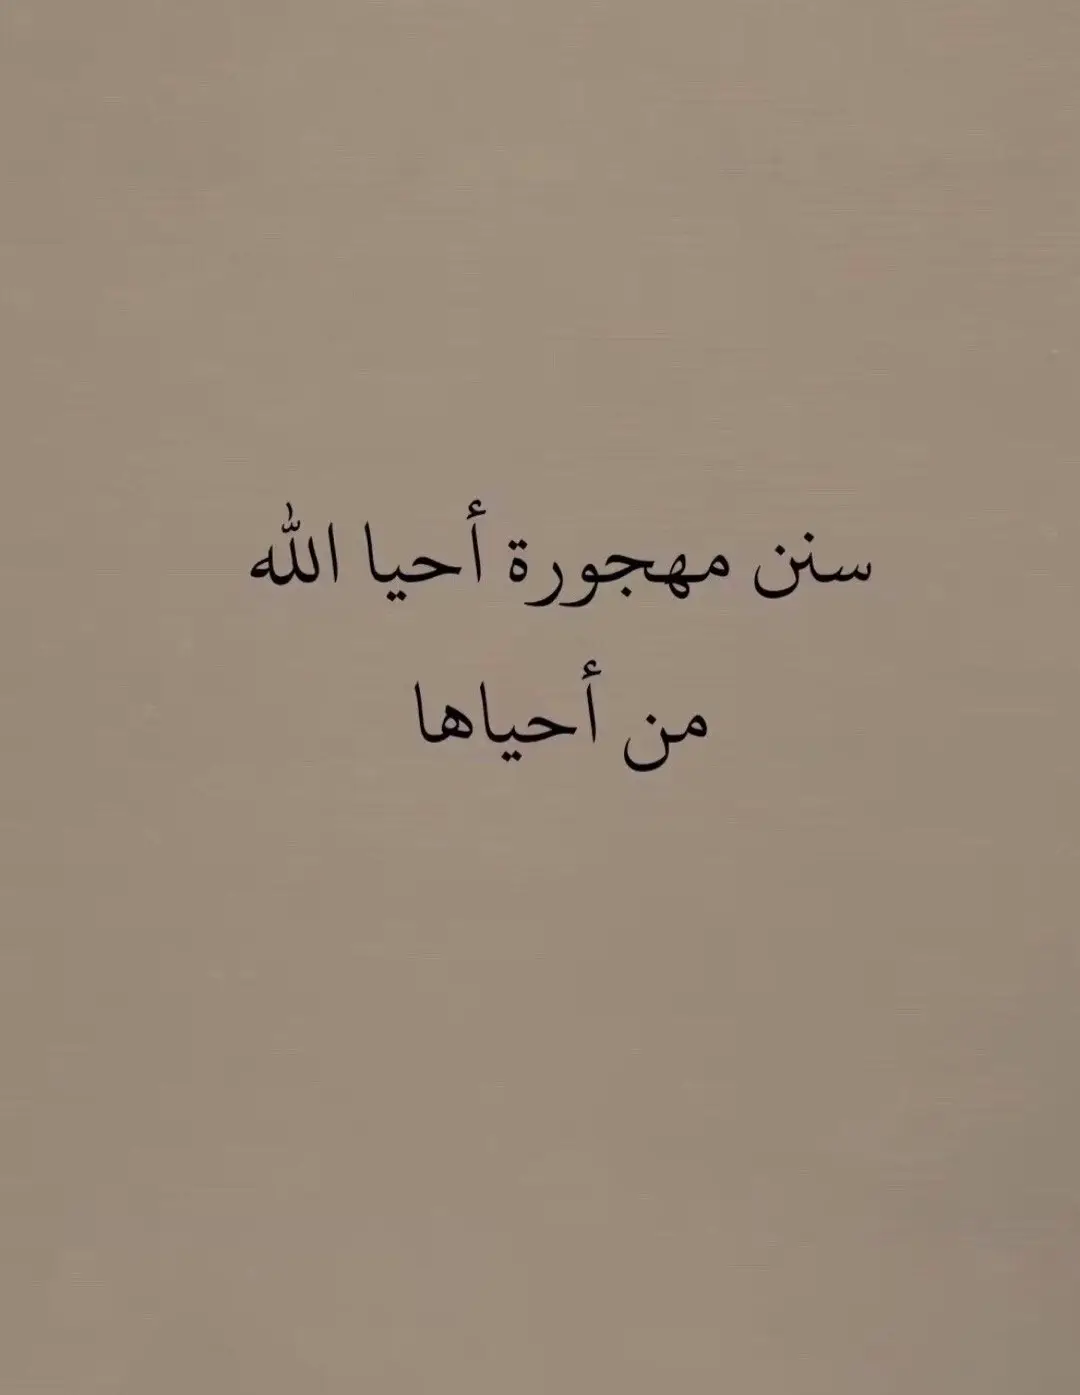 سنن مهجورة أحيا الله
من أحياها